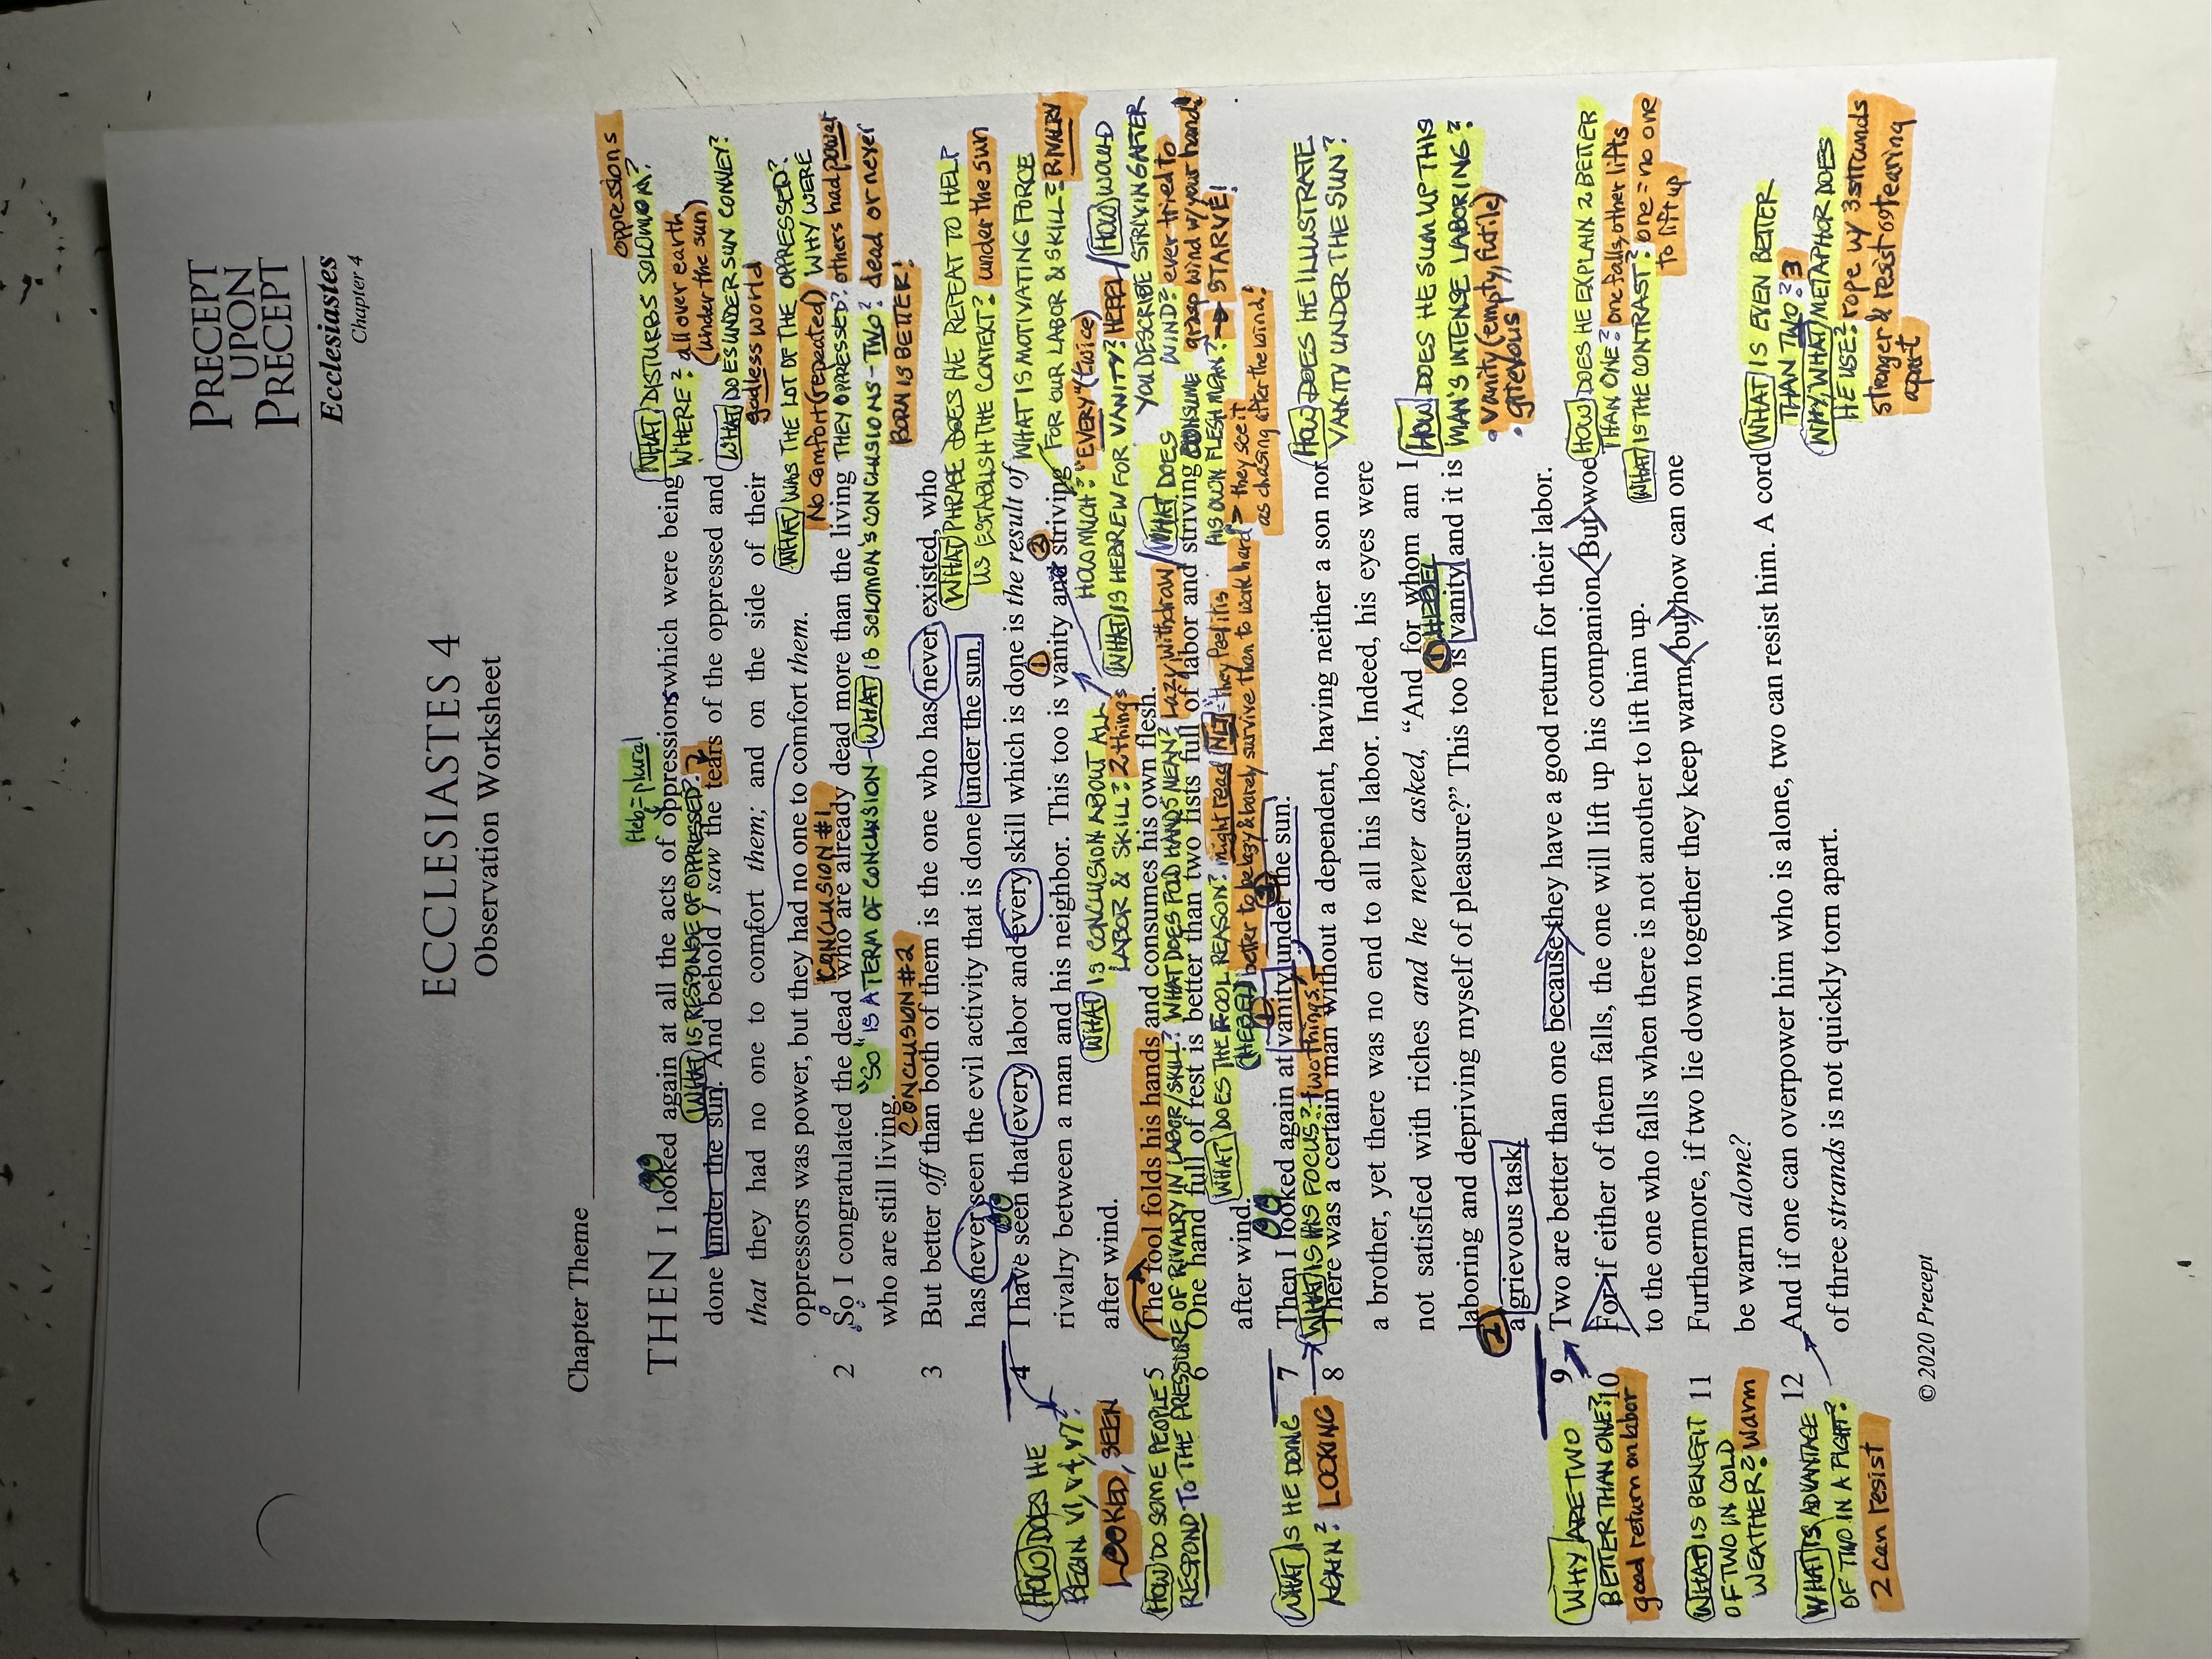 PRECEPT
UPON
PRECEPT
Ecclesiastes
Chapter 4
ECCLESIASTES 4
Observation Worksheet
Chapter Theme
oppressions
Heb = plural
WHAT DISTURBS SOLOMON?
THEN I looked again at all the acts of oppressions which were being
WHERE? all over earth
(under the sun)
WHAT IS RESPONSE OF OPPRESSED?
done under the sun. And behold I saw the tears of the oppressed and
WHAT DOES UNDER SUN CONVEY?
godless world
that they had no one to comfort them; and on the side of their
WHAT WAS THE LOT OF THE OPPRESSED?
No comfort (repeated) WHY WERE
oppressors was power, but they had no one to comfort them.
THEY OPPRESSED? others had power
CONCLUSION #1
2 So I congratulated the dead who are already dead more than the living
"SO" IS A TERM OF CONCLUSION - WHAT IS SOLOMON'S CONCLUSIONS - TWO? dead or never
BORN IS BETTER!
who are still living.
CONCLUSION #2
3 But better off than both of them is the one who has never existed, who
WHAT PHRASE DOES HE REPEAT TO HELP
US ESTABLISH THE CONTEXT? under the sun
has never seen the evil activity that is done under the sun.
4 I have seen that every labor and every skill which is done is the result of
WHAT IS MOTIVATING FORCE
FOR OUR LABOR & SKILL? RIVALRY
HOW DOES HE
BEGIN V1, V4, V7?
LOOKED, SEEN
rivalry between a man and his neighbor. This too is vanity and striving
1 2
HOW MUCH? "EVERY" (twice)
after wind.
WHAT IS CONCLUSION ABOUT ALL
LABOR & SKILL? 2 things
WHAT IS HEBREW FOR VANITY? HEBEL / HOW WOULD
YOU DESCRIBE STRIVING AFTER
WIND? ever tried to
grasp wind w/ your hand?
5 The fool folds his hands and consumes his own flesh.
HOW DO SOME PEOPLE
RESPOND TO THE PRESSURE OF RIVALRY IN LABOR/SKILL? WHAT DOES FOLD HANDS MEAN? Lazy withdraw / WHAT DOES CONSUME
HIS OWN FLESH MEAN? → STARVE!
6 One hand full of rest is better than two fists full of labor and striving
WHAT DOES THE FOOL REASON? might read NET = they feel it is
better to be lazy & barely survive than to work hard > they see it
as chasing after the wind!
after wind.
(HEBEL)
7 Then I looked again at vanity under the sun.
1 2
WHAT IS HE DOING
AGAIN? LOOKING
WHAT IS HIS FOCUS? two things.
HOW DOES HE ILLUSTRATE
VANITY UNDER THE SUN?
8 There was a certain man without a dependent, having neither a son nor
a brother, yet there was no end to all his labor. Indeed, his eyes were
not satisfied with riches and he never asked, "And for whom am I
1 HEBEL
HOW DOES HE SUM UP THIS
MAN'S INTENSE LABORING?
• vanity (empty, futile)
• grievous
laboring and depriving myself of pleasure?" This too is vanity and it is
2
a grievous task.
9 Two are better than one because they have a good return for their labor.
WHY ARE TWO
BETTER THAN ONE?
good return on labor
10 For if either of them falls, the one will lift up his companion. But woe
HOW DOES HE EXPLAIN 2 BETTER
THAN ONE? one falls, other lifts
WHAT IS THE CONTRAST? one = no one
to lift up
to the one who falls when there is not another to lift him up.
11 Furthermore, if two lie down together they keep warm, but how can one
WHAT IS BENEFIT
OF TWO IN COLD
WEATHER? Warm
be warm alone?
12 And if one can overpower him who is alone, two can resist him. A cord
WHAT IS ADVANTAGE
OF TWO IN A FIGHT?
2 can resist
WHAT IS EVEN BETTER
THAN TWO? 3
WHY, WHAT METAPHOR DOES
HE USE? rope w/ 3 strands
stronger & resist tearing
apart
of three strands is not quickly torn apart.
© 2020 Precept